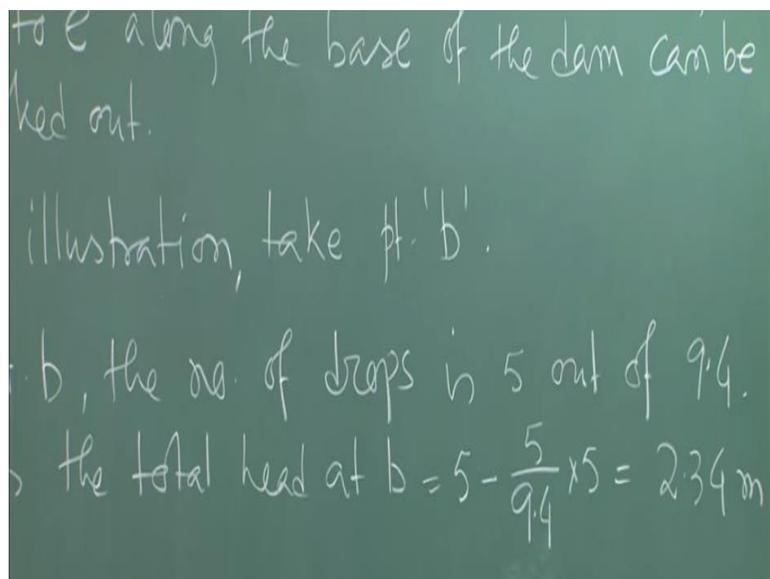 to e along the base of the dam can be
ked out.
illustration, take pt. 'b'.
. b, the no. of drops is 5 out of 9.4.
the total head at b = 5 - 5/9.4 x 5 = 2.34 m